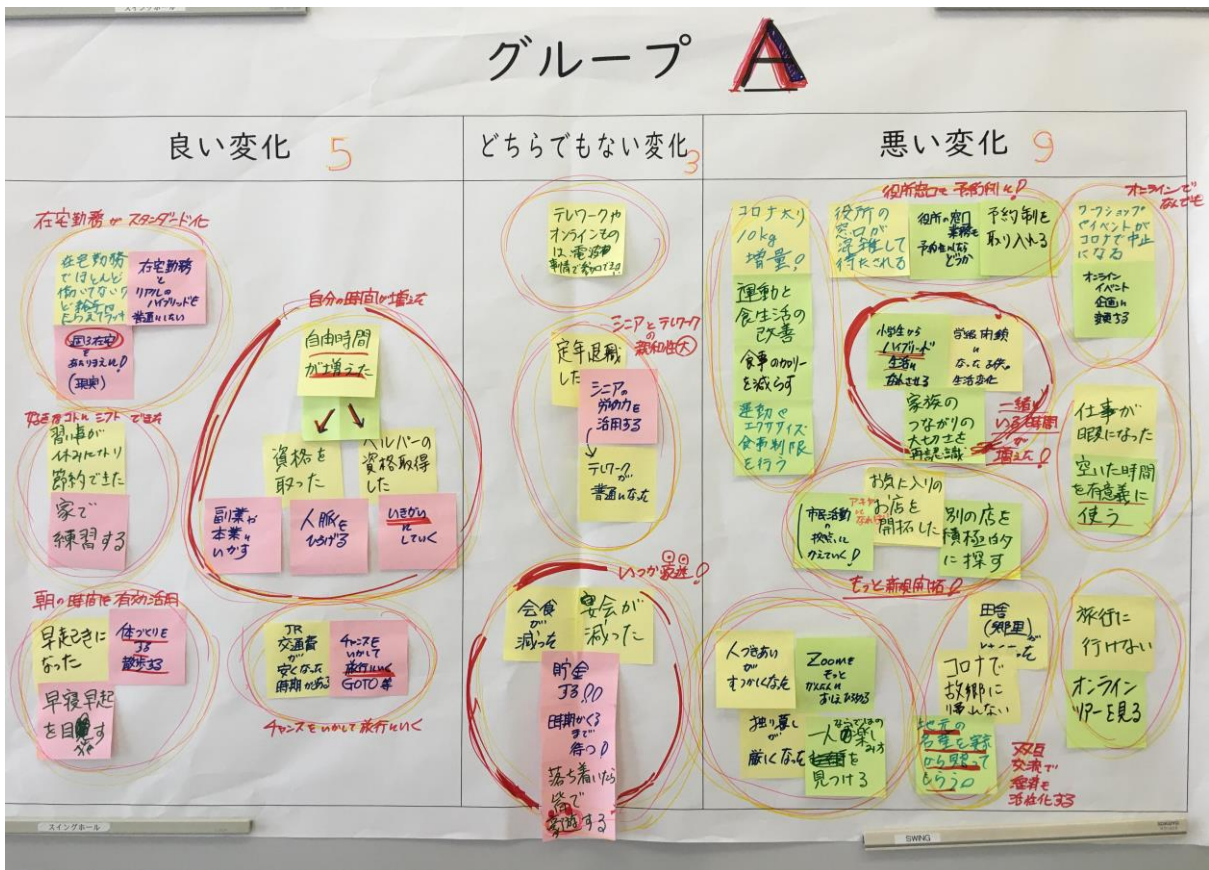 スイングホール
グループ A
良い変化 5
どちらでもない変化 3
悪い変化 9
在宅勤務がスタンダード化
在宅勤務
でほとんど
在宅勤務
と
リアルの
ハイブリッドを
普通にしたい
週3在宅
(現実)
好きなコトにシフトできた
習い事が
休みになり
節約できた
家で
練習する
朝の時間を有効活用
早起きに
なった
体づくりを
する
散歩する
早寝早起
を目指す
自分の時間が増えた
自由時間
が増えた
資格を
取った
ヘルパーの
資格取得
した
副業が
本業に
いかす
人脈を
ひろげる
いきがい
に
していく
JR
交通費
が
安くなった
時期がある
チャンスを
いかして
旅行にいく
GOTO等
チャンスをいかして旅行にいく
テレワークや
オンラインもの
は、電波
シニアとテレワークの
親和性大
定年退職
した
シニアの
労働力を
活用する
テレワークが
普通になった
いつか豪遊!
会食
が
減った
宴会が
減った
貯金
する!!
時期がくる
まで
待つ!
落ち着いたら
皆で
豪遊する
コロナ太り
10kg
増量!
運動と
食生活の
改善
食事のカロリー
を減らす
運動や
エクササイズ
食事制限
を行う
役所窓口を予約制に!
役所の
窓口が
混雑して
待たされる
役所の窓口
業務も
予約性にしたら
どうか
予約制を
取り入れる
オンラインで
なんでも
ワークショップ
やイベントが
コロナで中止
になる
オンライン
イベント
企画に
参加する
小学生から
ハイブリード
生活に
学級閉鎖
に
なった
生活変化
家族の
つながりの
大切さを
再認識
一緒に
いる時間
が
増えた!
仕事が
暇になった
空いた時間
を有意義に
使う
市民活動
の
拠点に
かえていく!
お気に入りの
お店を
開拓した
別の店を
積極的
に探す
もっと新規開拓!
人づきあい
が
むつかしくなった
Zoomを
もっと
かんたんに
独り暮し
が
厳しくなった
ならではの
一人の楽し
み方
を
見つける
田舎
(郷里)が
コロナで
故郷に
帰れない
地元の
名産を実家
から送って
もらう!
双互
交流で
経済を
活性化する
旅行に
行けない
オンライン
ツアーを見る
スイングホール
SWING